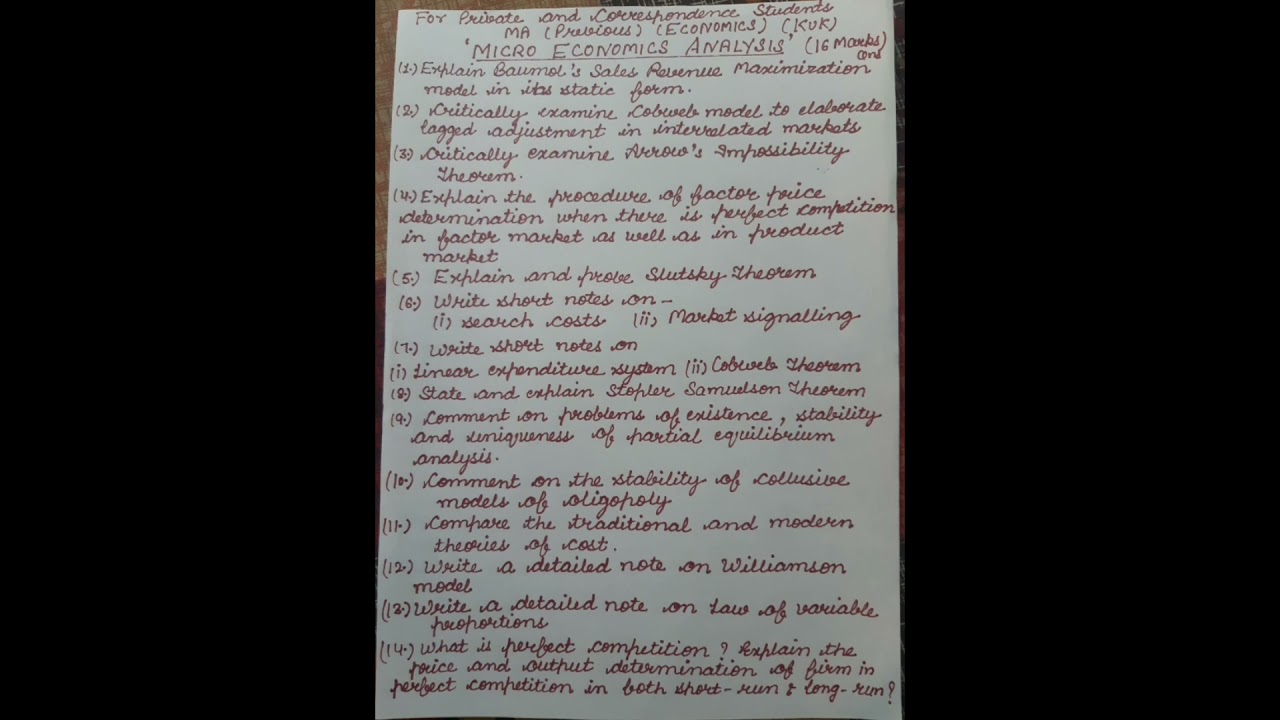 For Private and Correspondence Students
MA (Previous) (ECONOMICS) (KUK)
'MICRO ECONOMICS ANALYSIS' (16 Marks)
(1.) Explain Baumol's Sales Revenue Maximization
model in its static form.
(2.) Critically examine Cobweb model to elaborate
lagged adjustment in interrelated markets
(3.) Critically examine Arrow's Impossibility
Theorem.
(4.) Explain the procedure of factor price
determination when there is perfect competition
in factor market as well as in product
market
(5.) Explain and prove Slutsky Theorem
(6.) Write short notes on -
(i) search costs (ii) Market signalling
(7.) Write short notes on
(i) Linear expenditure system (ii) Cobweb Theorem
(8.) State and explain Stopler Samuelson Theorem
(9.) Comment on problems of existence, stability
and uniqueness of partial equilibrium
analysis.
(10.) Comment on the stability of collusive
models of oligopoly
(11.) Compare the traditional and modern
theories of cost.
(12.) Write a detailed note on Williamson
model
(13.) Write a detailed note on Law of variable
proportions
(14.) What is perfect competition? Explain the
price and output determination of firm in
perfect competition in both short-run & long-run?